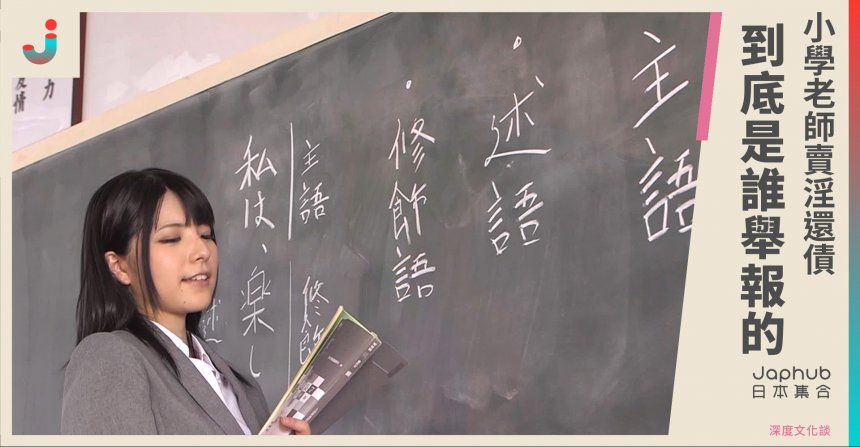 小學老師賣淫還債
到底是誰舉報的
Japhub
日本集合
深度文化談
主語
・述語
・修飾語
主語
私は、楽し
修飾
述
力
友情